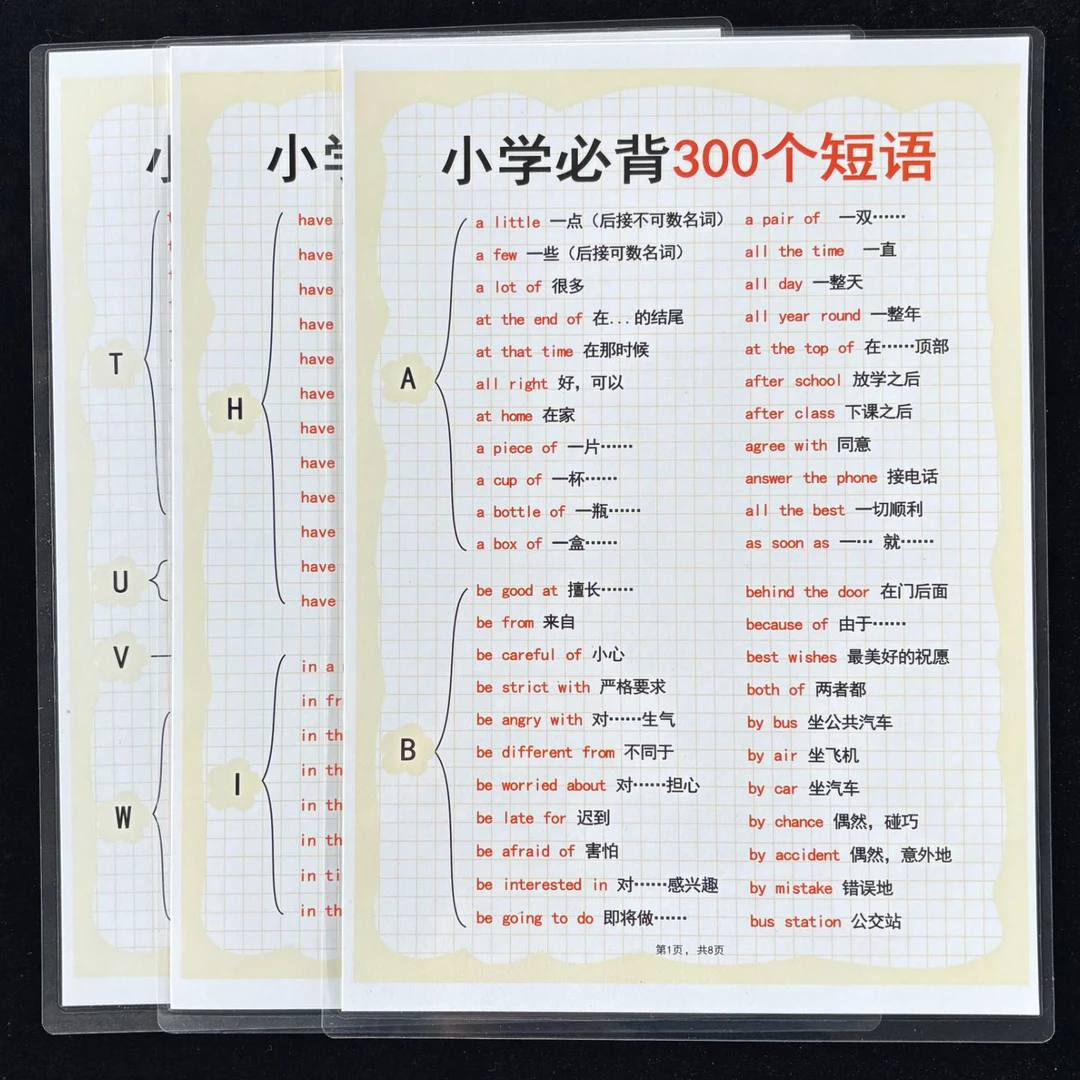 小学必背300个短语
A
a little 一点（后接不可数名词）
a few 一些（后接可数名词）
a lot of 很多
at the end of 在...的结尾
at that time 在那时候
all right 好，可以
at home 在家
a piece of 一片……
a cup of 一杯……
a bottle of 一瓶……
a box of 一盒……
a pair of 一双……
all the time 一直
all day 一整天
all year round 一整年
at the top of 在……顶部
after school 放学之后
after class 下课之后
agree with 同意
answer the phone 接电话
all the best 一切顺利
as soon as 一… 就……
B
be good at 擅长……
be from 来自
be careful of 小心
be strict with 严格要求
be angry with 对……生气
be different from 不同于
be worried about 对……担心
be late for 迟到
be afraid of 害怕
be interested in 对……感兴趣
be going to do 即将做……
behind the door 在门后面
because of 由于……
best wishes 最美好的祝愿
both of 两者都
by bus 坐公共汽车
by air 坐飞机
by car 坐汽车
by chance 偶然，碰巧
by accident 偶然，意外地
by mistake 错误地
bus station 公交站
第1页，共8页
小
H
have
have
have
have
have
have
have
have
have
have
have
have
I
in a
in
in
in
in
in
in
in
T
U
V
W